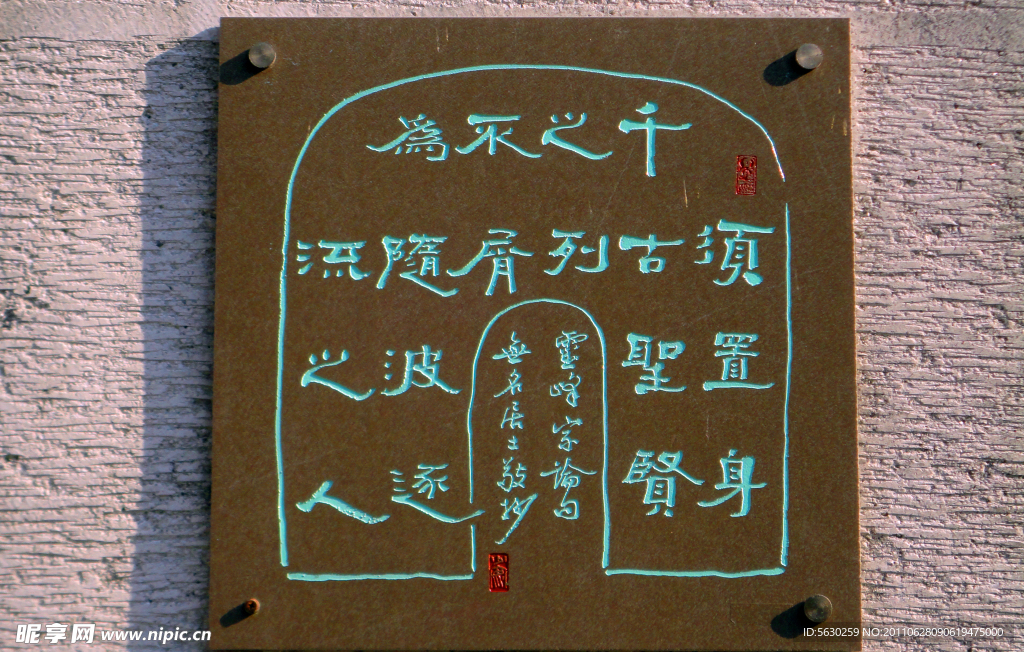 須置身
千古聖賢
之列
不屑
為隨波逐
流之人
靈峰宗論句
無名居士敬抄
昵享网 www.nipic.cn
ID:5630259 NO:20110628090619475000